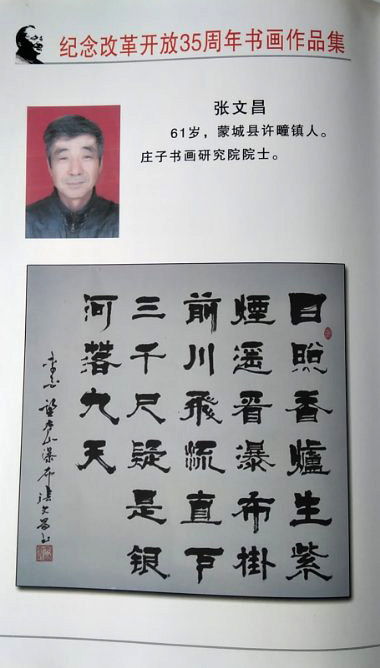 纪念改革开放35周年书画作品集
张文昌
61岁，蒙城县许疃镇人。
庄子书画研究院院士。
日照香爐生紫
煙遥看瀑布掛
前川飛流直下
三千尺疑是银
河落九天
李白望庐山瀑布張文昌书